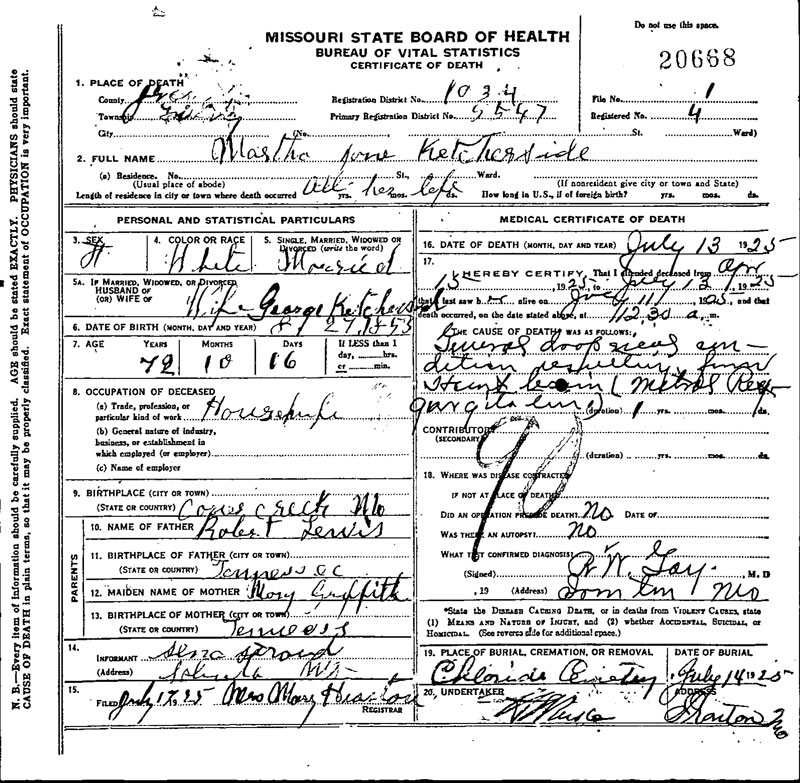 Do not use this space.
MISSOURI STATE BOARD OF HEALTH
BUREAU OF VITAL STATISTICS
CERTIFICATE OF DEATH
20668
1. PLACE OF DEATH
County
Registration District No. 1034
File No. 1
Township
Primary Registration District No. 5547
Registered No. 4
City (No. St. Ward)
2. FULL NAME Martha Jane Ketcherside
(a) Residence. No. St., Ward.
(Usual place of abode) (If nonresident give city or town and State)
Length of residence in city or town where death occurred All her life yrs. mos. ds. How long in U.S., if of foreign birth? yrs. mos. ds.
PERSONAL AND STATISTICAL PARTICULARS
3. SEX 4. COLOR OR RACE 5. SINGLE, MARRIED, WIDOWED OR DIVORCED (write the word)
F White Married
5A. IF MARRIED, WIDOWED, OR DIVORCED
HUSBAND OF
(OR) WIFE OF Wife George Ketcherside
6. DATE OF BIRTH (MONTH, DAY AND YEAR) 8/27 1853
7. AGE YEARS MONTHS DAYS If LESS than 1 day, hrs. or min.
72 10 16
8. OCCUPATION OF DECEASED
(a) Trade, profession, or particular kind of work Housewife
(b) General nature of industry, business, or establishment in which employed (or employer)
(c) Name of employer
9. BIRTHPLACE (CITY OR TOWN)
(STATE OR COUNTRY) Creek Mo
PARENTS
10. NAME OF FATHER Robert Lewis
11. BIRTHPLACE OF FATHER (CITY OR TOWN)
(STATE OR COUNTRY) Tennessee
12. MAIDEN NAME OF MOTHER Mary Griffith
13. BIRTHPLACE OF MOTHER (CITY OR TOWN)
(STATE OR COUNTRY)
14.
INFORMANT
(Address)
15.
FILED July 17, 25 Mrs Mary
REGISTRAR
MEDICAL CERTIFICATE OF DEATH
16. DATE OF DEATH (MONTH, DAY AND YEAR) July 13 1925
17.
I HEREBY CERTIFY, That I attended deceased from Apr
15, 1925, to July 13, 1925
that I last saw her alive on July 11, 1925, and that
death occurred, on the date stated above, at 12.30 a. m.
THE CAUSE OF DEATH WAS AS FOLLOWS:
General dropsical con-
dition resulting from
(Mitral Re-
gurgitation)
(duration) 1 yrs. mos. ds.
CONTRIBUTORY
(SECONDARY)
(duration) yrs. mos. ds.
90
18. WHERE WAS DISEASE CONTRACTED
IF NOT AT PLACE OF DEATH?
DID AN OPERATION PRECEDE DEATH? No DATE OF
WAS THERE AN AUTOPSY? No
WHAT TEST CONFIRMED DIAGNOSIS?
(Signed) R W Gay, M. D
, 19 (Address) Mo
*State the DISEASE CAUSING DEATH, or in deaths from VIOLENT CAUSES, state
(1) MEANS AND NATURE OF INJURY, and (2) whether ACCIDENTAL, SUICIDAL, or
HOMICIDAL. (See reverse side for additional space.)
19. PLACE OF BURIAL, CREMATION, OR REMOVAL DATE OF BURIAL
Chloride Cemetery July 14 1925
20. UNDERTAKER ADDRESS
Ironton Mo
N. B.—Every item of information should be carefully supplied. AGE should be stated EXACTLY. PHYSICIANS should state
CAUSE OF DEATH in plain terms, so that it may be properly classified. Exact statement of OCCUPATION is very important.